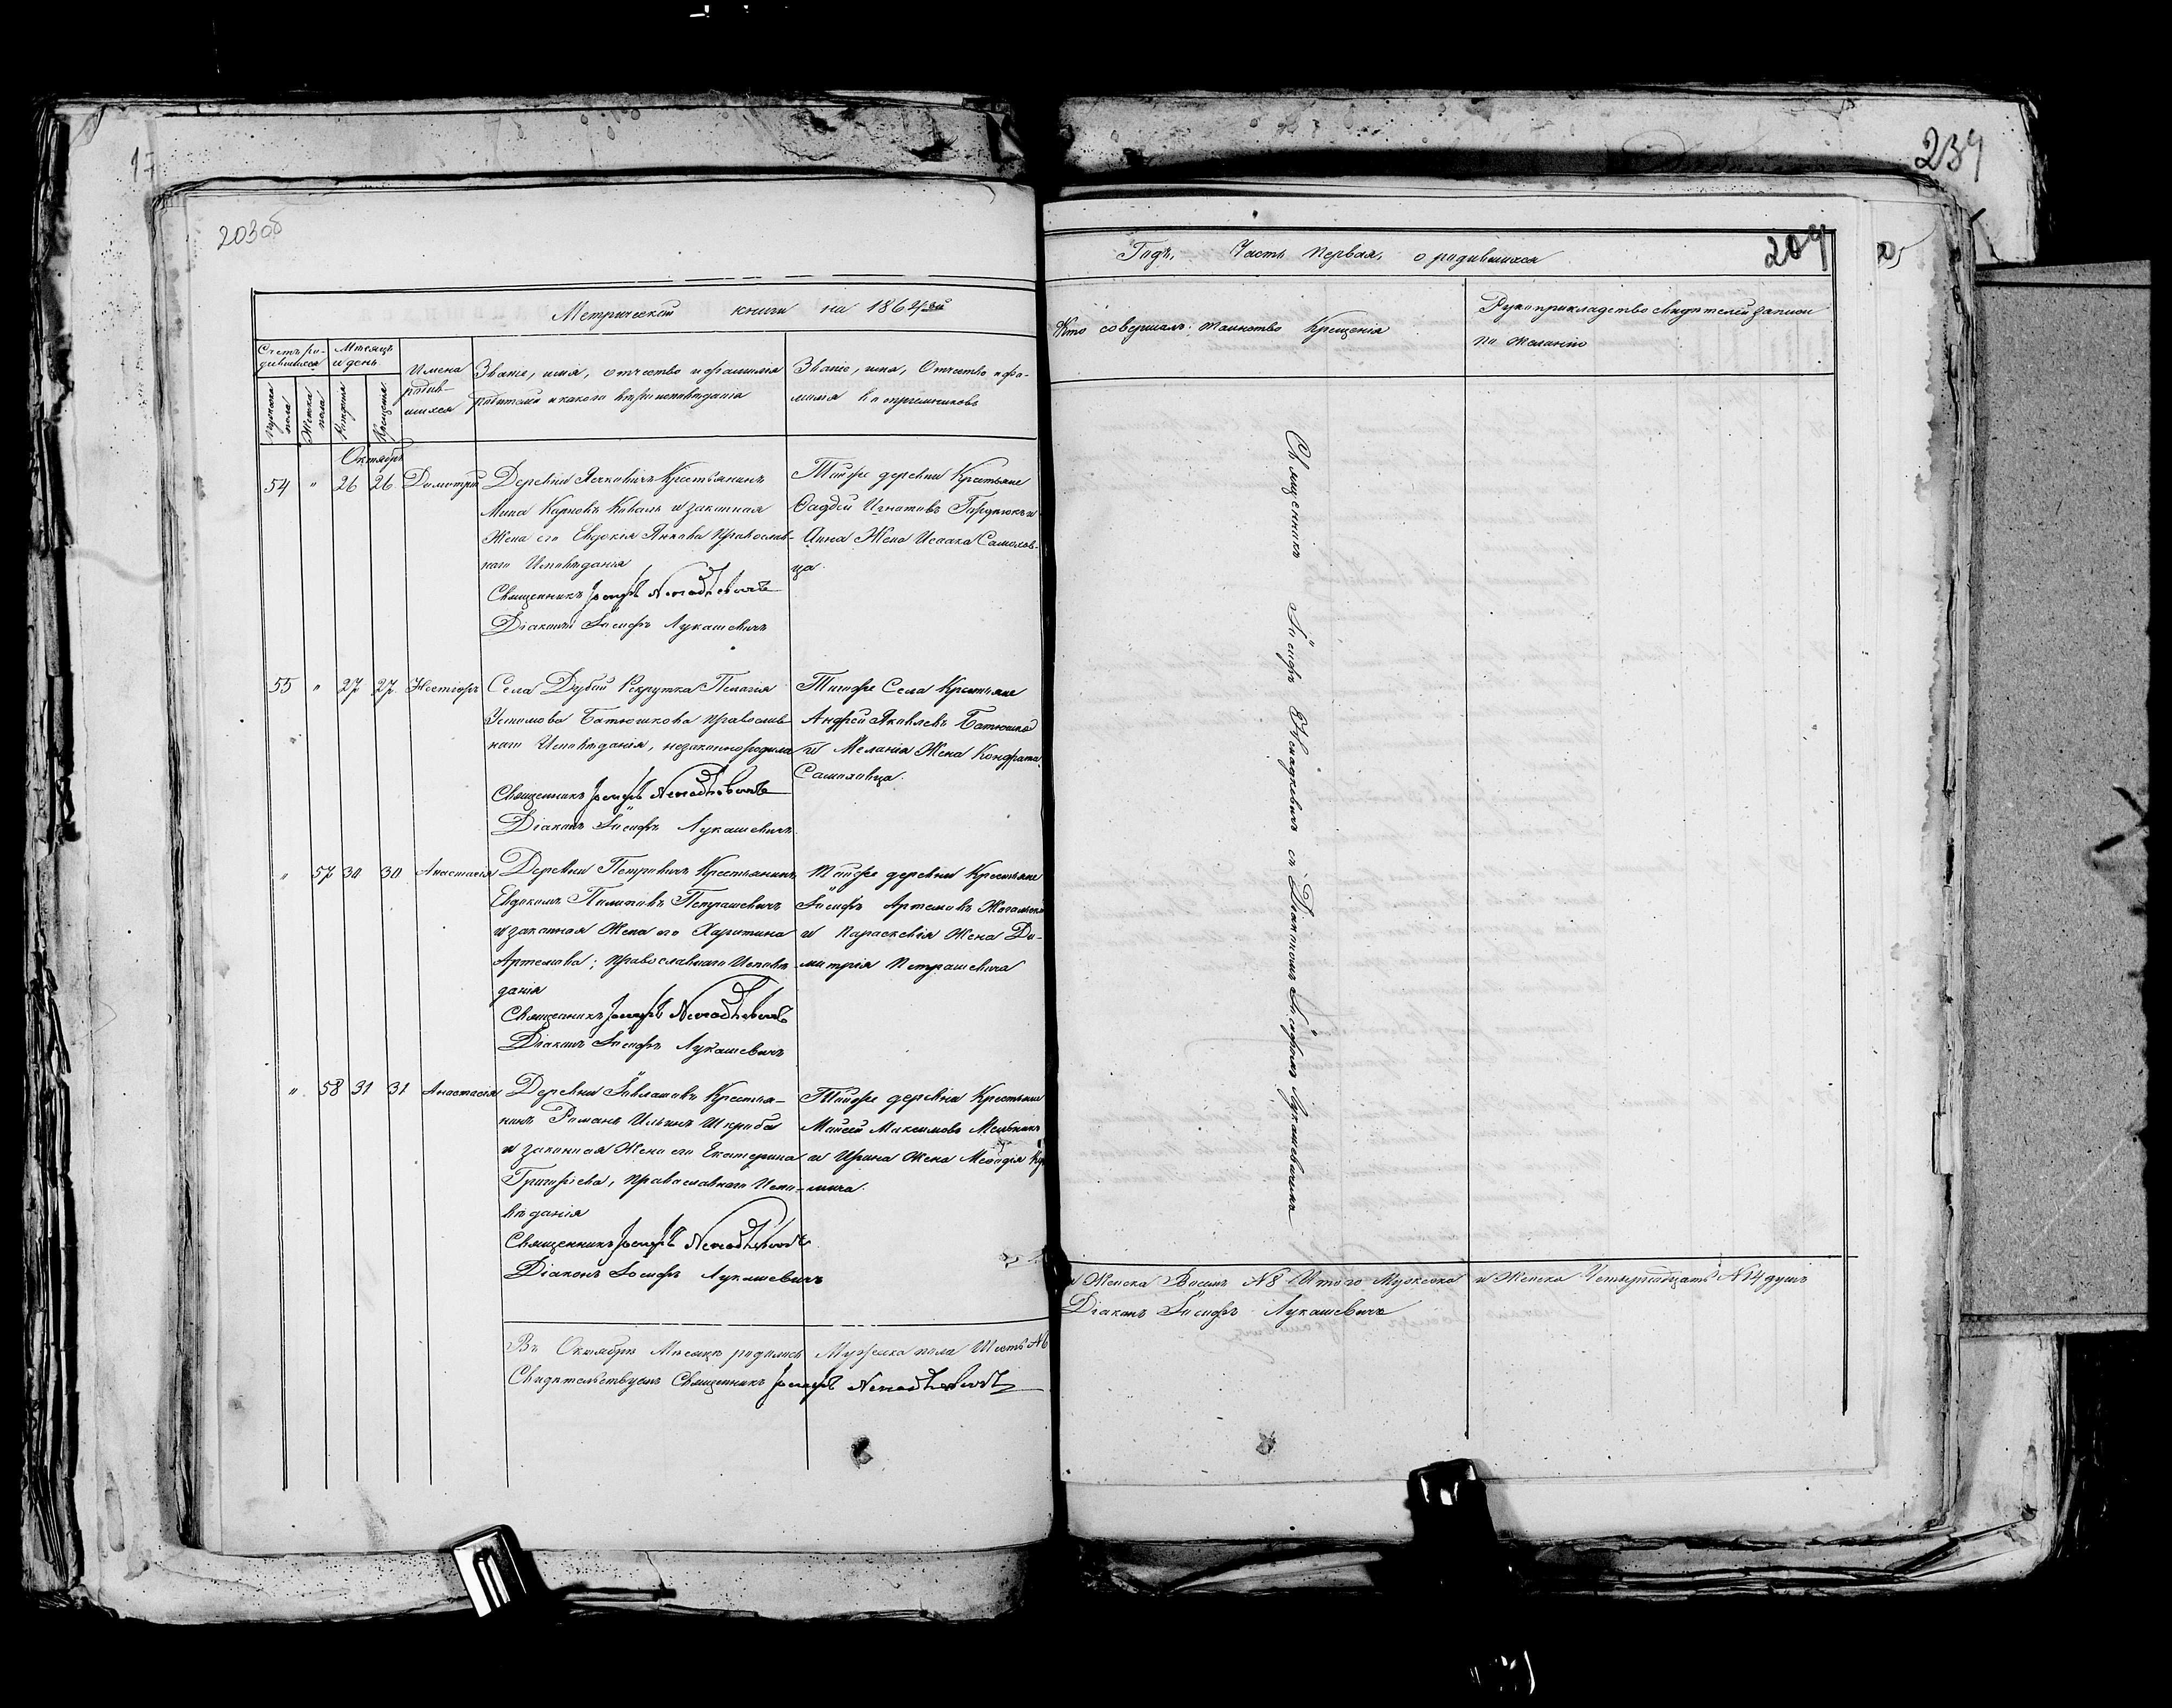 203об
239
204
Метрической книги на 1864ый
Годъ, Часть Первая, о родившихся
Счетъ ро-
дившихся
Мѣсяцъ
и день
Имена
родив-
шихся
Званіе, имя, отчество и фамилія
родителей и какого вѣроисповѣданія
Званіе, имя, Отчество и фа-
милія Воспріемниковъ
Мужеска
пола
Женска
пола
Рожденія
Крещенія
Кто совершалъ таинство Крещенія
Рукоприкладство свидѣтелей записи
по желанію
Октябрь
54 " 26 26 Димитрій
Деревни Крестьянинъ
Мина Карповъ Коваль и законная
Жена его Евдокія Янкова Православ-
наго Исповѣданія
Священникъ Іосифъ
Діаконъ Іосифъ Лукашевичъ
Тойже деревни Крестьяне
Фаддей Игнатовъ Гордюкъ и
Анна Жена Исаака Самолов-
ца.
55 " 27 27 Несторъ
Села Дубой Рекрутка Пелагія
Устимова Батюшкова православ-
наго Исповѣданія, незаконнородила
Священникъ Іосифъ
Діаконъ Іосифъ Лукашевичъ
Тогоже Села Крестьяне
Андрей Яковлевъ Батюшко
и Меланія Жена Кондрата
Самоловца.
" 57 30 30 Анастасія
Деревни Петровичъ Крестьянинъ
Евдокимъ Пилиповъ Петрашевичъ
и законная Жена его Харитина
Артемова; православнаго Исповѣ-
данія
Священникъ Іосифъ
Діаконъ Іосифъ Лукашевичъ
Тойже деревни Крестьяне
Іосифъ Артемовъ
и Параскевія Жена Ди-
митрія Петрашевича
" 58 31 31 Анастасія
Деревни Крестья-
нинъ Романъ Ильинъ Шкраба
и законная Жена его Екатерина
Григорьева, православнаго Испо-
вѣданія
Священникъ Іосифъ
Діаконъ Іосифъ Лукашевичъ
Тойже деревни Крестьяне
Моисей Максимовъ Мельникъ
и Ирина Жена
Священникъ Іосифъ съ Діакономъ Іосифомъ Лукашевичемъ
Въ Октябрѣ Мѣсяцѣ родилось Мужеска пола Шесть №6
и Женска Восемь №8 Итого Мужеска и Женска Четырнадцать №14 душъ
Свидѣтельствуемъ Священникъ Іосифъ
Діаконъ Іосифъ Лукашевичъ